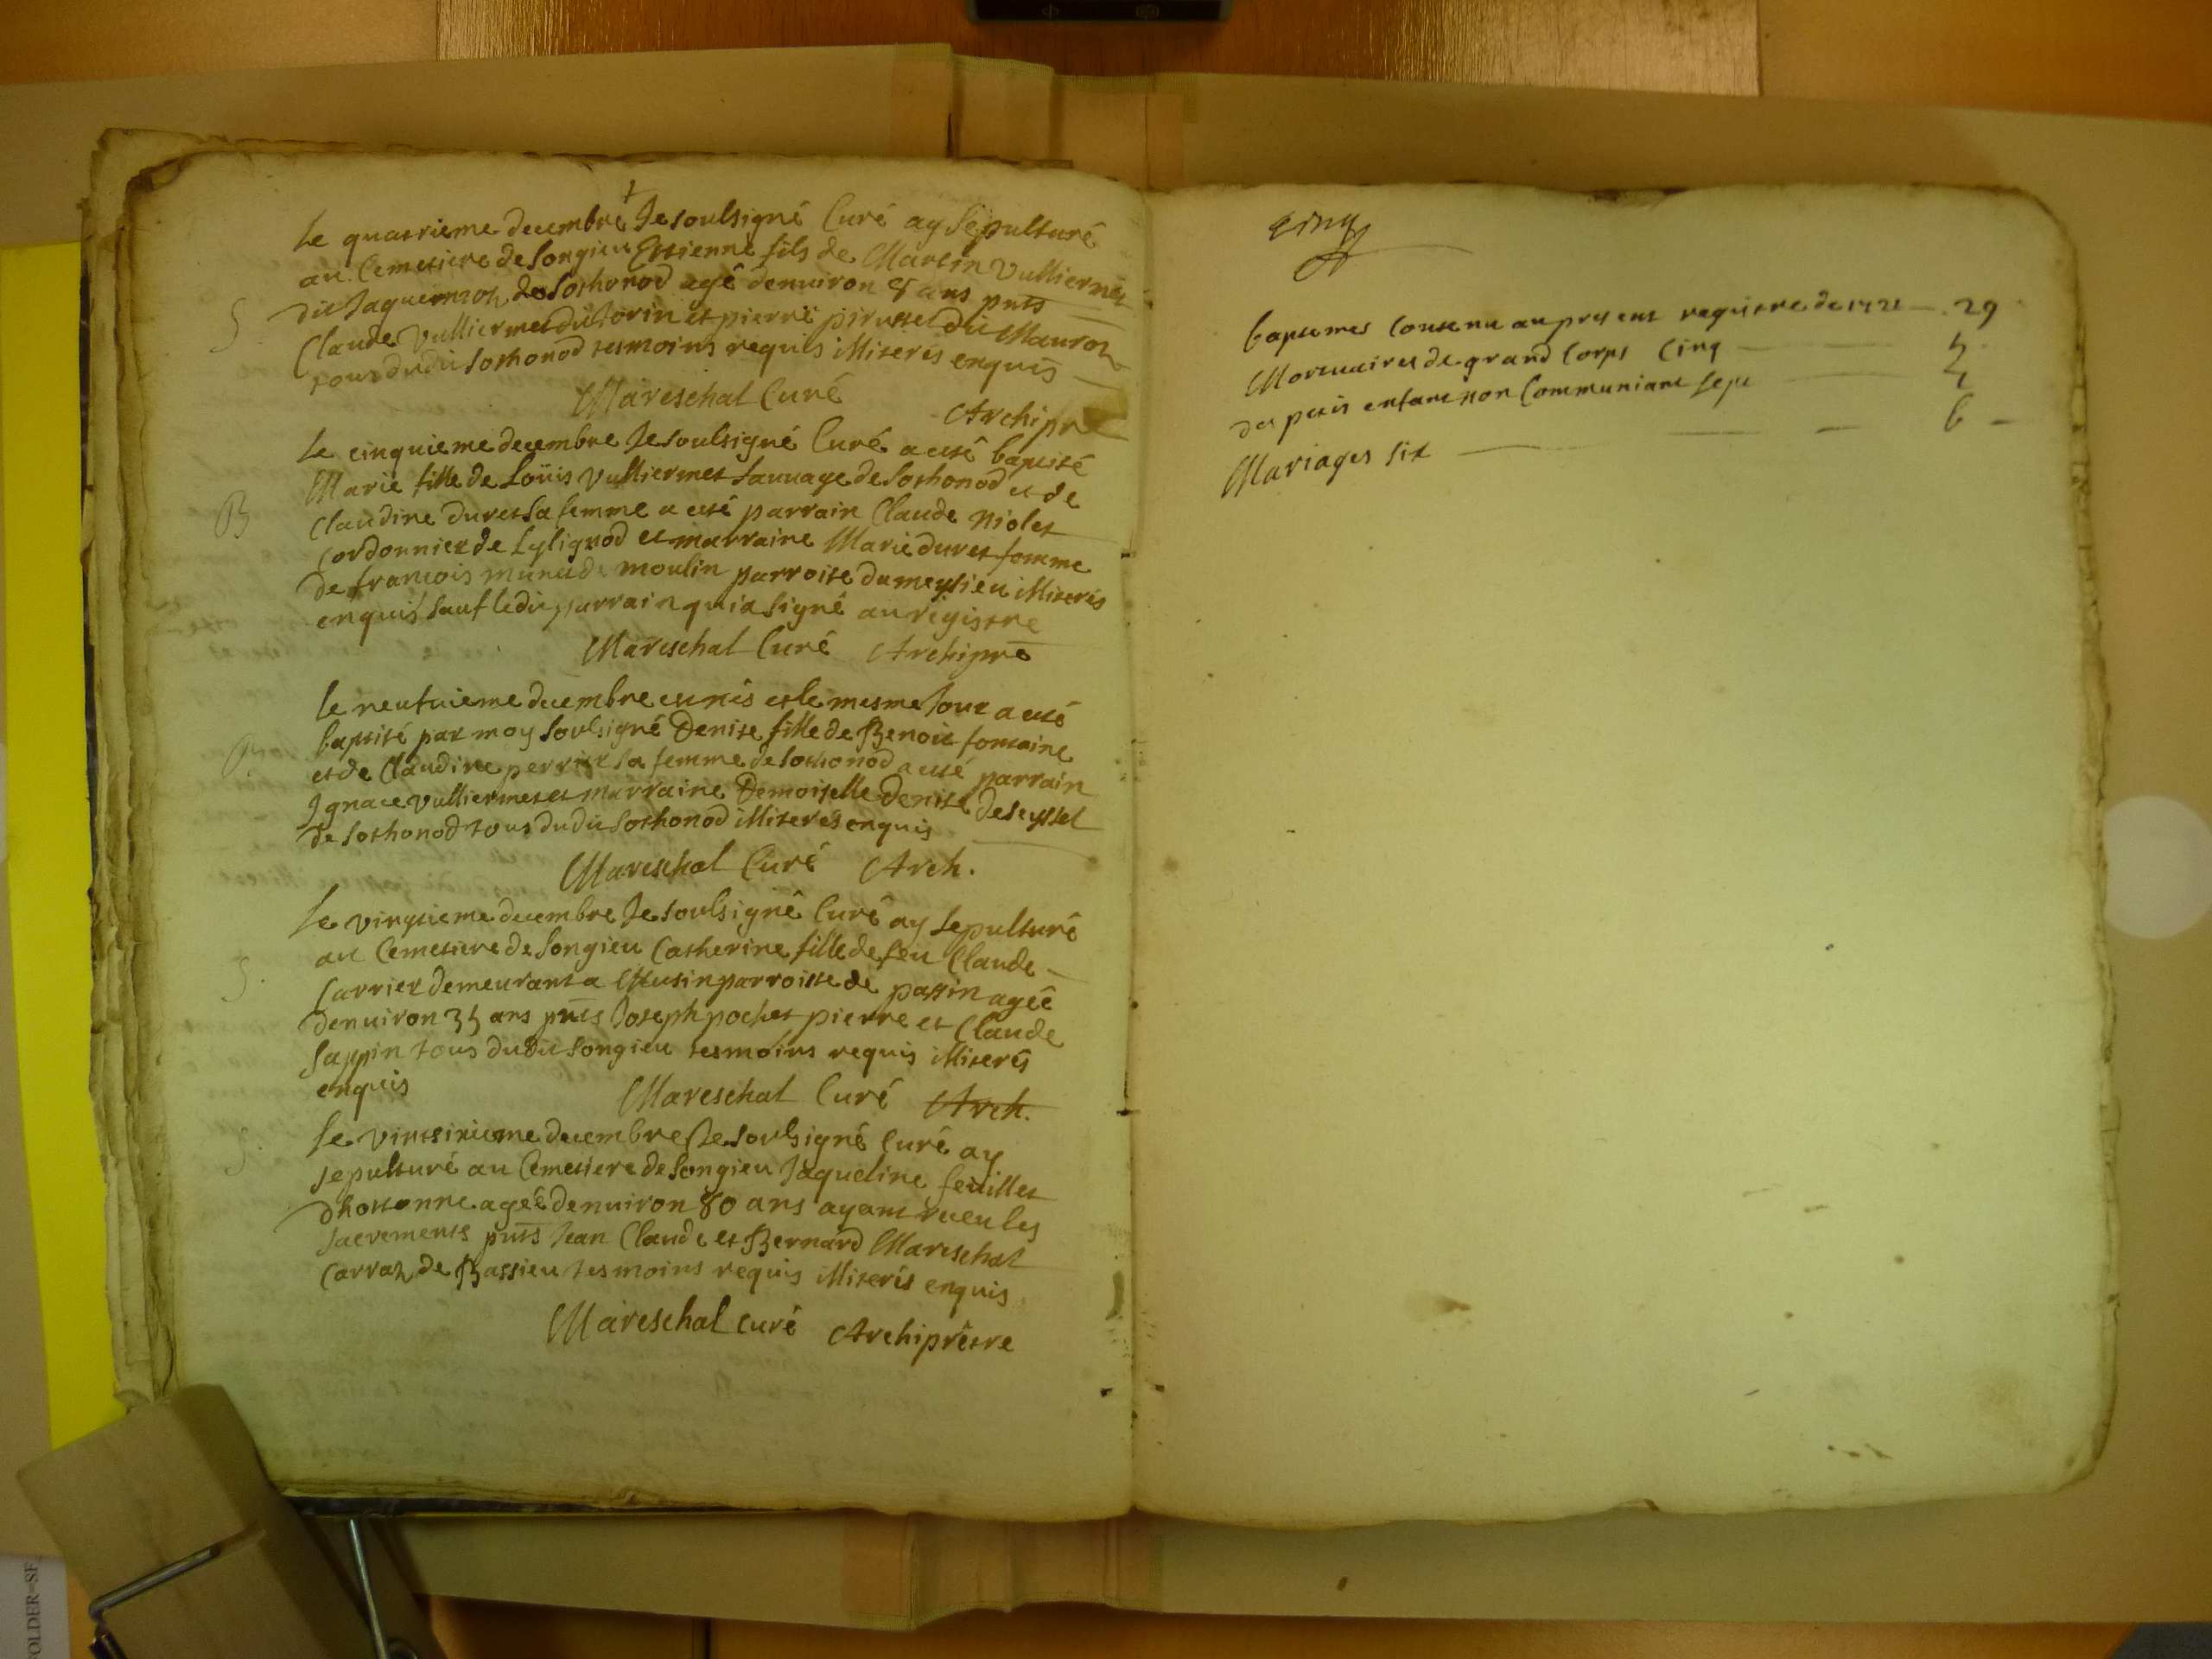 Le quatrieme decembre Je soulsigné Curé ay sepulturé
au Cemetiere de Songieu Estienne fils de Martin Vulliermet
dit Jaquemoz de Sothonod agé denuiron 8 ans pnts
S
Claude Vulliermet du Jorin et pierre pirussel dit Mauroz
tous dudit Sothonod tesmoins requis illiterés enquis
Mareschal Curé Archipre
Le cinquieme decembre Je soulsigné Curé a esté baptisé
Marie fille de Loüis Vulliermet Sauuage de Sothonod et de
B
Claudine duret sa femme a esté parrain Claude Niolet
Cordonnier de Lylignod et marraine Marie duret femme
de francois moulin parroisse dameysieu illiterés
enquis sauf ledit parrain qui a signé au registre
Mareschal Curé Archipre
Le neufuieme decembre est nés et le mesme Jour a esté
baptisé par moy soulsigné Denise fille de Benoit fontaine
B
et de Claudine perrier sa femme de Sothonod a esté parrain
Ignace Vulliermet et marraine Demoiselle Denise de seyssel
de Sothonod tous dudit Sothonod illiterés enquis
Mareschal Curé Arch.
Le vingtieme decembre Je soulsigné Curé ay sepulturé
au Cemetiere de Songieu Catherine fille de feu Claude
S.
Carrier demeurant a Musin parroisse de passin agée
denuiron 35 ans pnts Joseph pochet pierre et Claude
Sappin tous dudit Songieu tesmoins requis illiterés
enquis
Mareschal Curé Arch.
Le vintsixieme decembre Je soulsigné Curé ay
S.
sepulturé au Cemetiere de Songieu Jaqueline feuillet
dhostonne agée denuiron 80 ans ayant receu les
sacrements pnts Jean Claude et Bernard Mareschal
Carraz de Bassieu tesmoins requis illiterés enquis
Mareschal Curé Archiprêtre
cinq
baptemes contenu au present registre de 1721 — 29
Mortuaires de grand Corps Cinq — 5
des petis enfant non Communiant sept — 7
Mariages six — 6 —
OLDER=SF